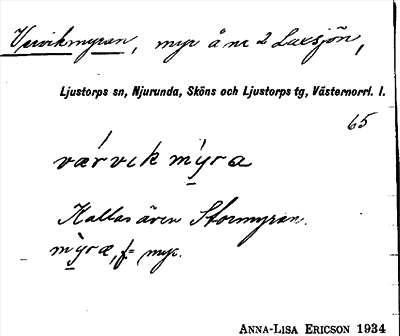 Värvikmyran, myr å nr 2 Laxsjön,
Ljustorps sn, Njurunda, Sköns och Ljustorps tg, Västernorrl. l.
65
værvık myra
Kallas även Stormyran.
myræ, f= myr.
ANNA-LISA ERICSON 1934